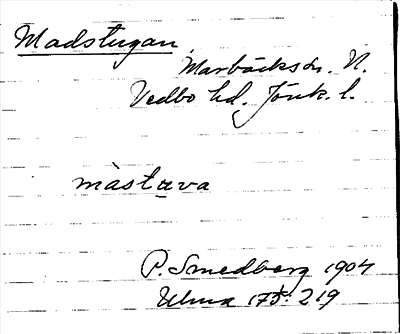 Madstugan
Marbäcks sn. N.
Vedbo hd. Jönk. l.
mastuva
P. Smedberg 1904
Ulma 175: 219